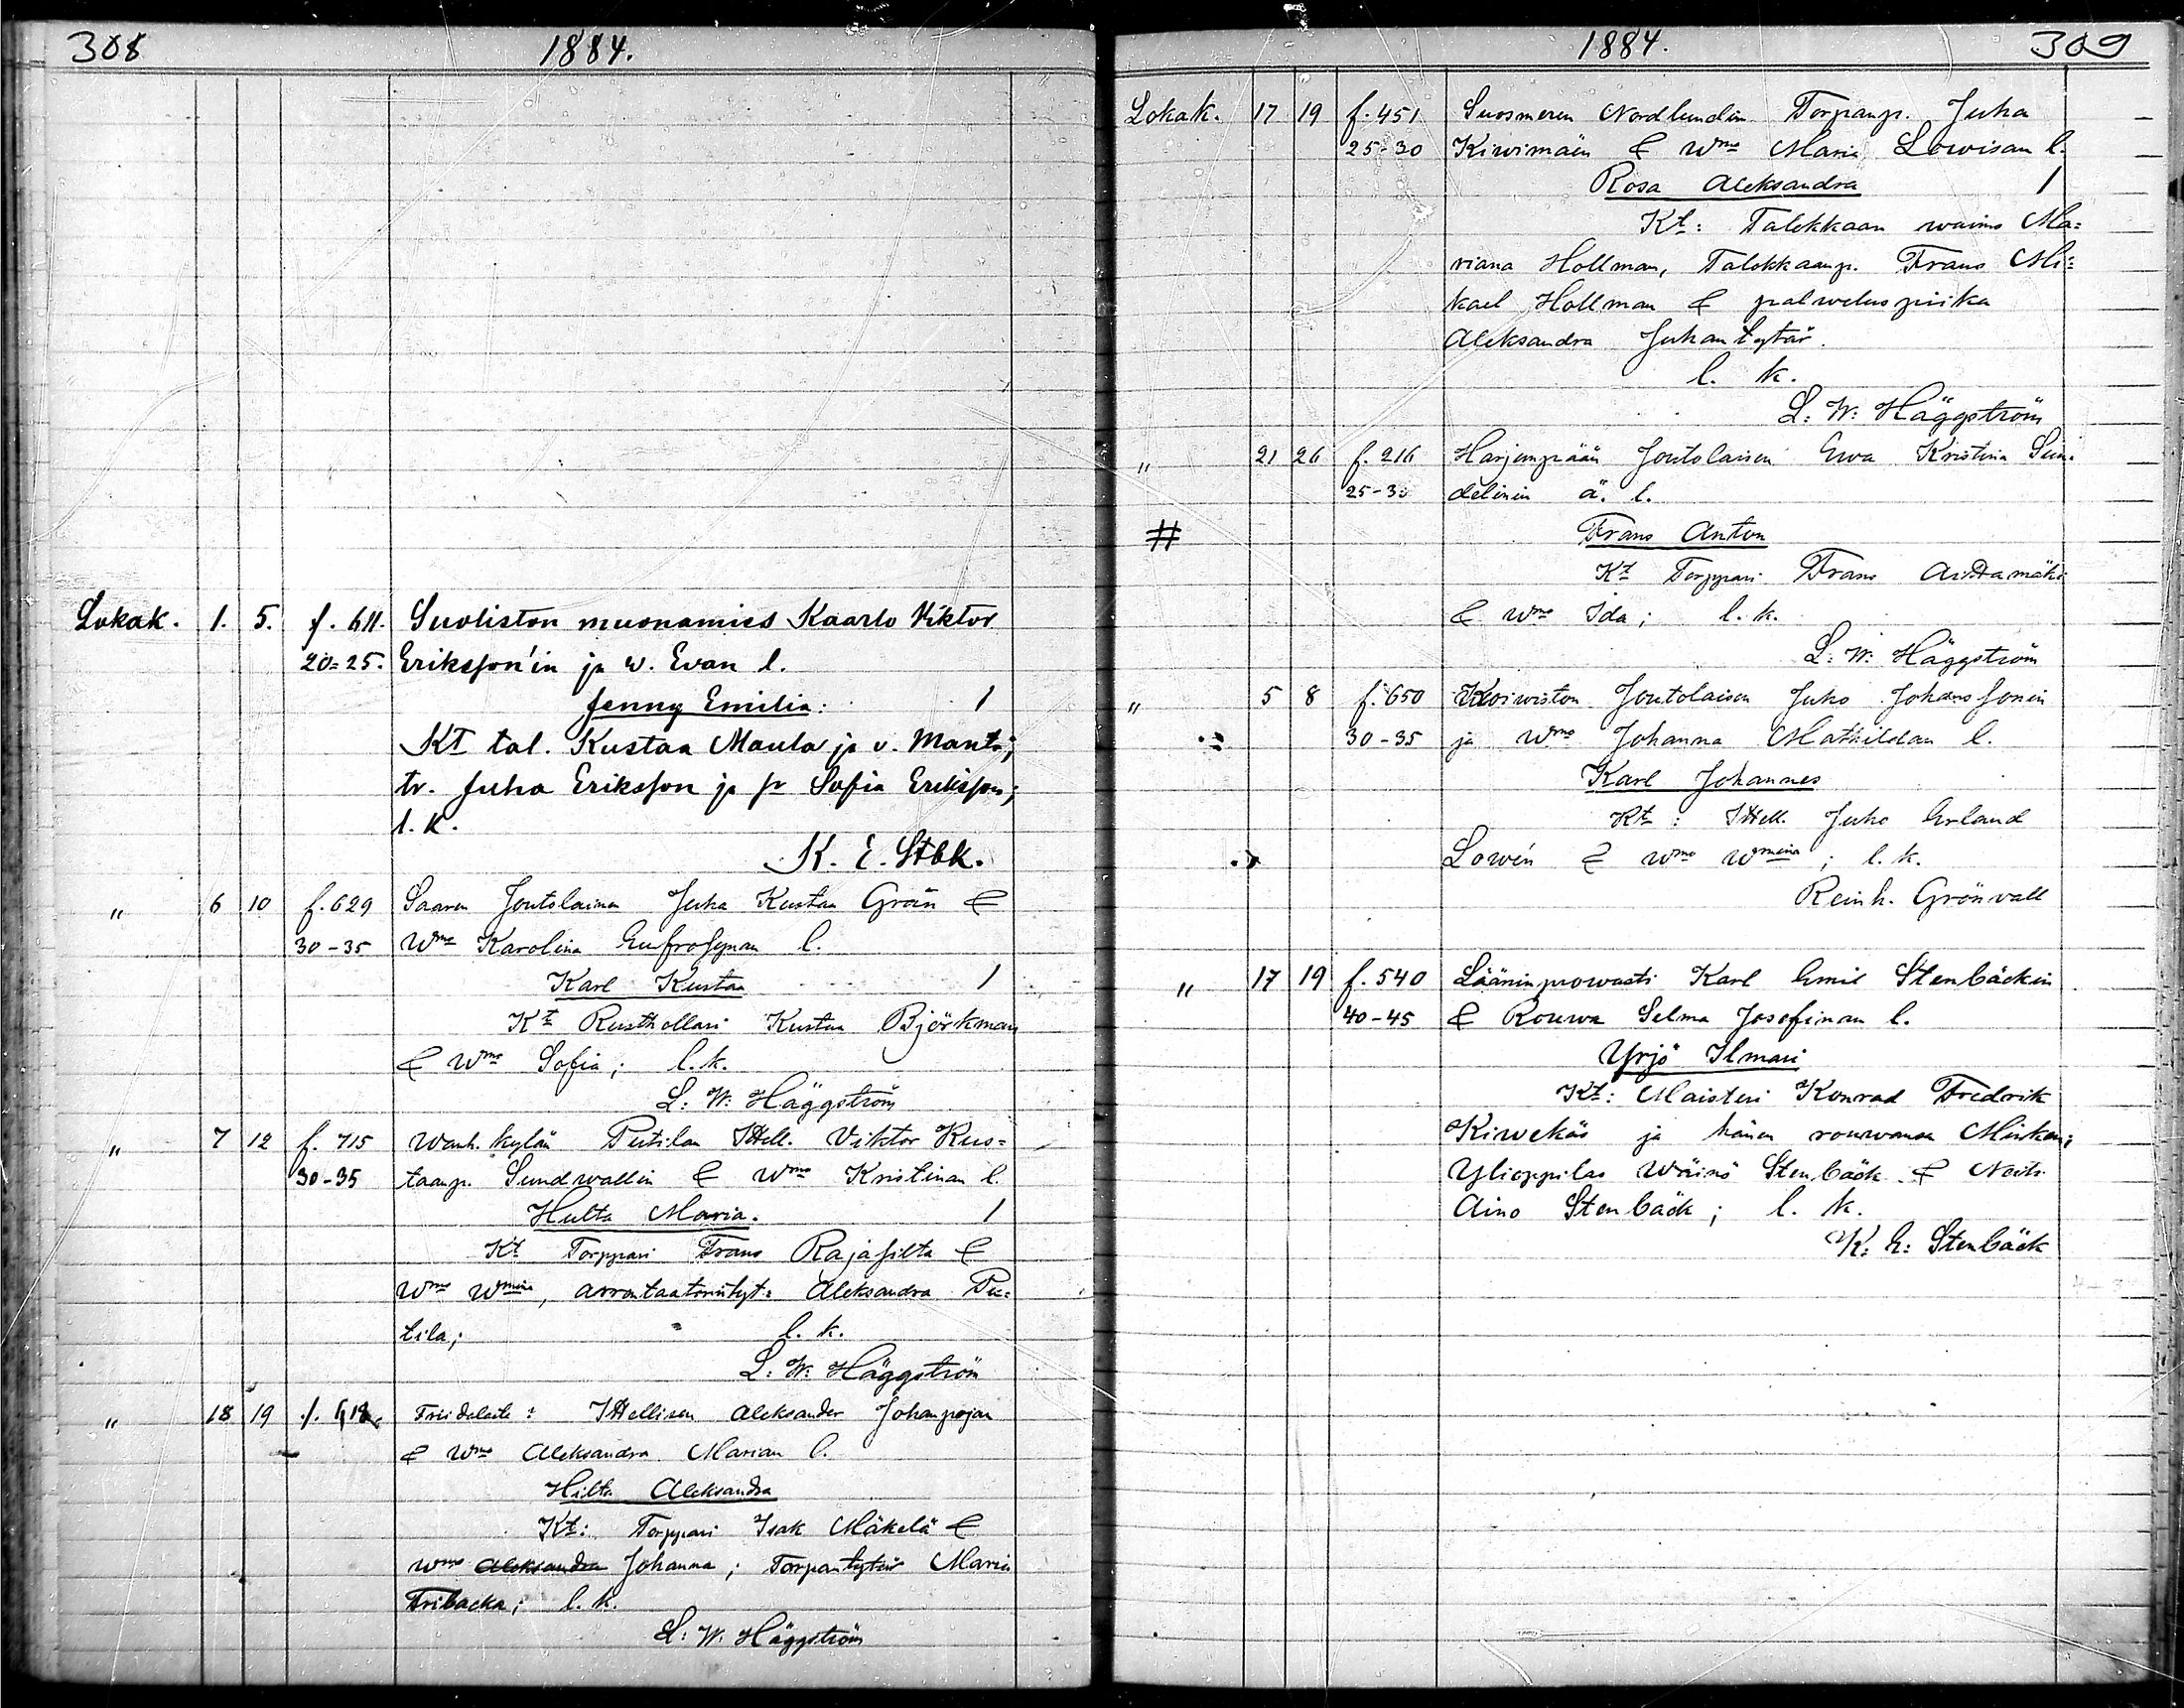 308 1884.
Lokak. 1. 5. f. 611. Suoliston muonamies Kaarlo Viktor
20=25. Eriksson'in ja w. Evan l.
Jenny Emilia: 1
Kt tal. Kustaa Maula ja v. Manta;
tr. Juha Eriksson ja pr Sofia Eriksson;
l. k.
K. E. Stbk.
" 6 10 f. 629 Saaren Joutolainen Juha Kustaa Grän &
30-35 Wmo Karolina Eufrosynan l.
Karl Kustaa 1
Kt Rusthollari Kustaa Björkman
& Wmo Sofia; l. k.
L: W: Häggström
" 7 12 f. 715 Wanh. kylän Putilan Itsell. Viktor Kus=
30-35 taanp. Sundwallin & Wmo Kristinan l.
Hulta Maria. 1
Kt Torppari Frans Rajasilta &
Wmo Wmeia, arrentaatorintyt: Aleksandra Pu=
tila; l. k.
L. W. Häggström
" 18 19 f. Itsellisen Aleksander Johanpojan
& Wmo Aleksandra Marian l.
Hilta Aleksandra
Kt: Torppari Isak Mäkelä &
Wmo Aleksandra Johanna; Torpantytär Maria
Fribacka; l. k.
L: W. Häggström
1884. 309
Lokak. 17 19 f. 451 Suosmeren Nordlundin Torpanp. Juha
25-30 Kiwimäen & Wmo Maria Lowisan l.
Rosa Aleksandra 1
Kt: Talokkaan waimo Ma=
riana Hollman, Talokkaanp. Frans Mi=
kael Hollman & palweluspiika
Aleksandra Juhantytär.
l. k.
L: W: Häggström
" 21 26 f. 216 Harjunpään Joutolaisen Ewa Kristina Sun=
25-30 delinin ä. l.
# Frans Anton
Kt Torppari Frans Aittamäki
& Wmo Ida; l. k.
L: W: Häggström
" 5 8 f. 650 Koiwiston Joutolaisen Juho Johanssonin
30-35 ja Wmo Johanna Mathildan l.
Karl Johannes
Kt: Itsell. Juho Erland
Lowén & Wmo Wmeina; l. k.
Reinh. Grönvall
" 17 19 f. 540 Lääninprowasti Karl Emil Stenbäckin
40-45 & Rouwa Selma Josefinan l.
Yrjö Ilmari
Kt: Maisteri Konrad Fredrik
Kiwekäs ja hänen rouwansa
Ylioppilas Wäinö Stenbäck & Neiti
Aino Stenbäck; l. k.
K: E: Stenbäck